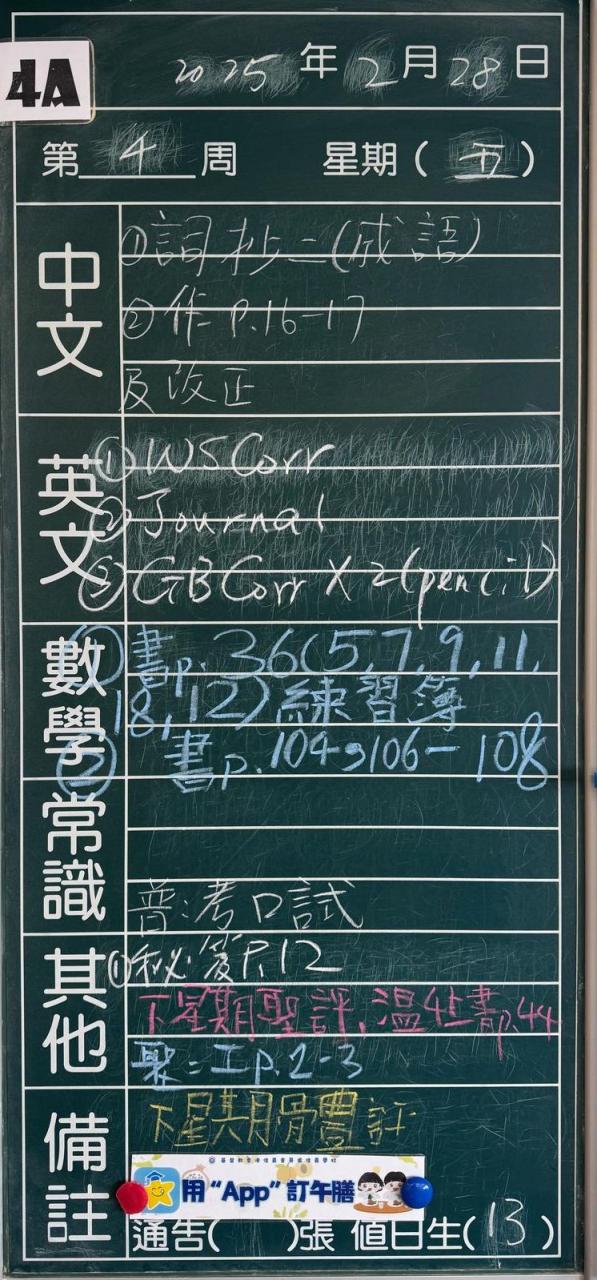 4A
2025年2月28日
第4周 星期(五)
中文
①詞抄二(成語)
②作 P.16-17
及改正
英文
①WS Corr
②Journal
③GB Corr X 2(pencil)
數學
①書p.36(5,7,9,11,
18,12)練習簿
②書p.104,106-108
常識
普:考口試
其他
①秘笈P.12
下星期聖評,溫4上書p.44
聚:工p.2-3
備註
下星期體評
用“App”訂午膳
通告( )張 值日生(13)